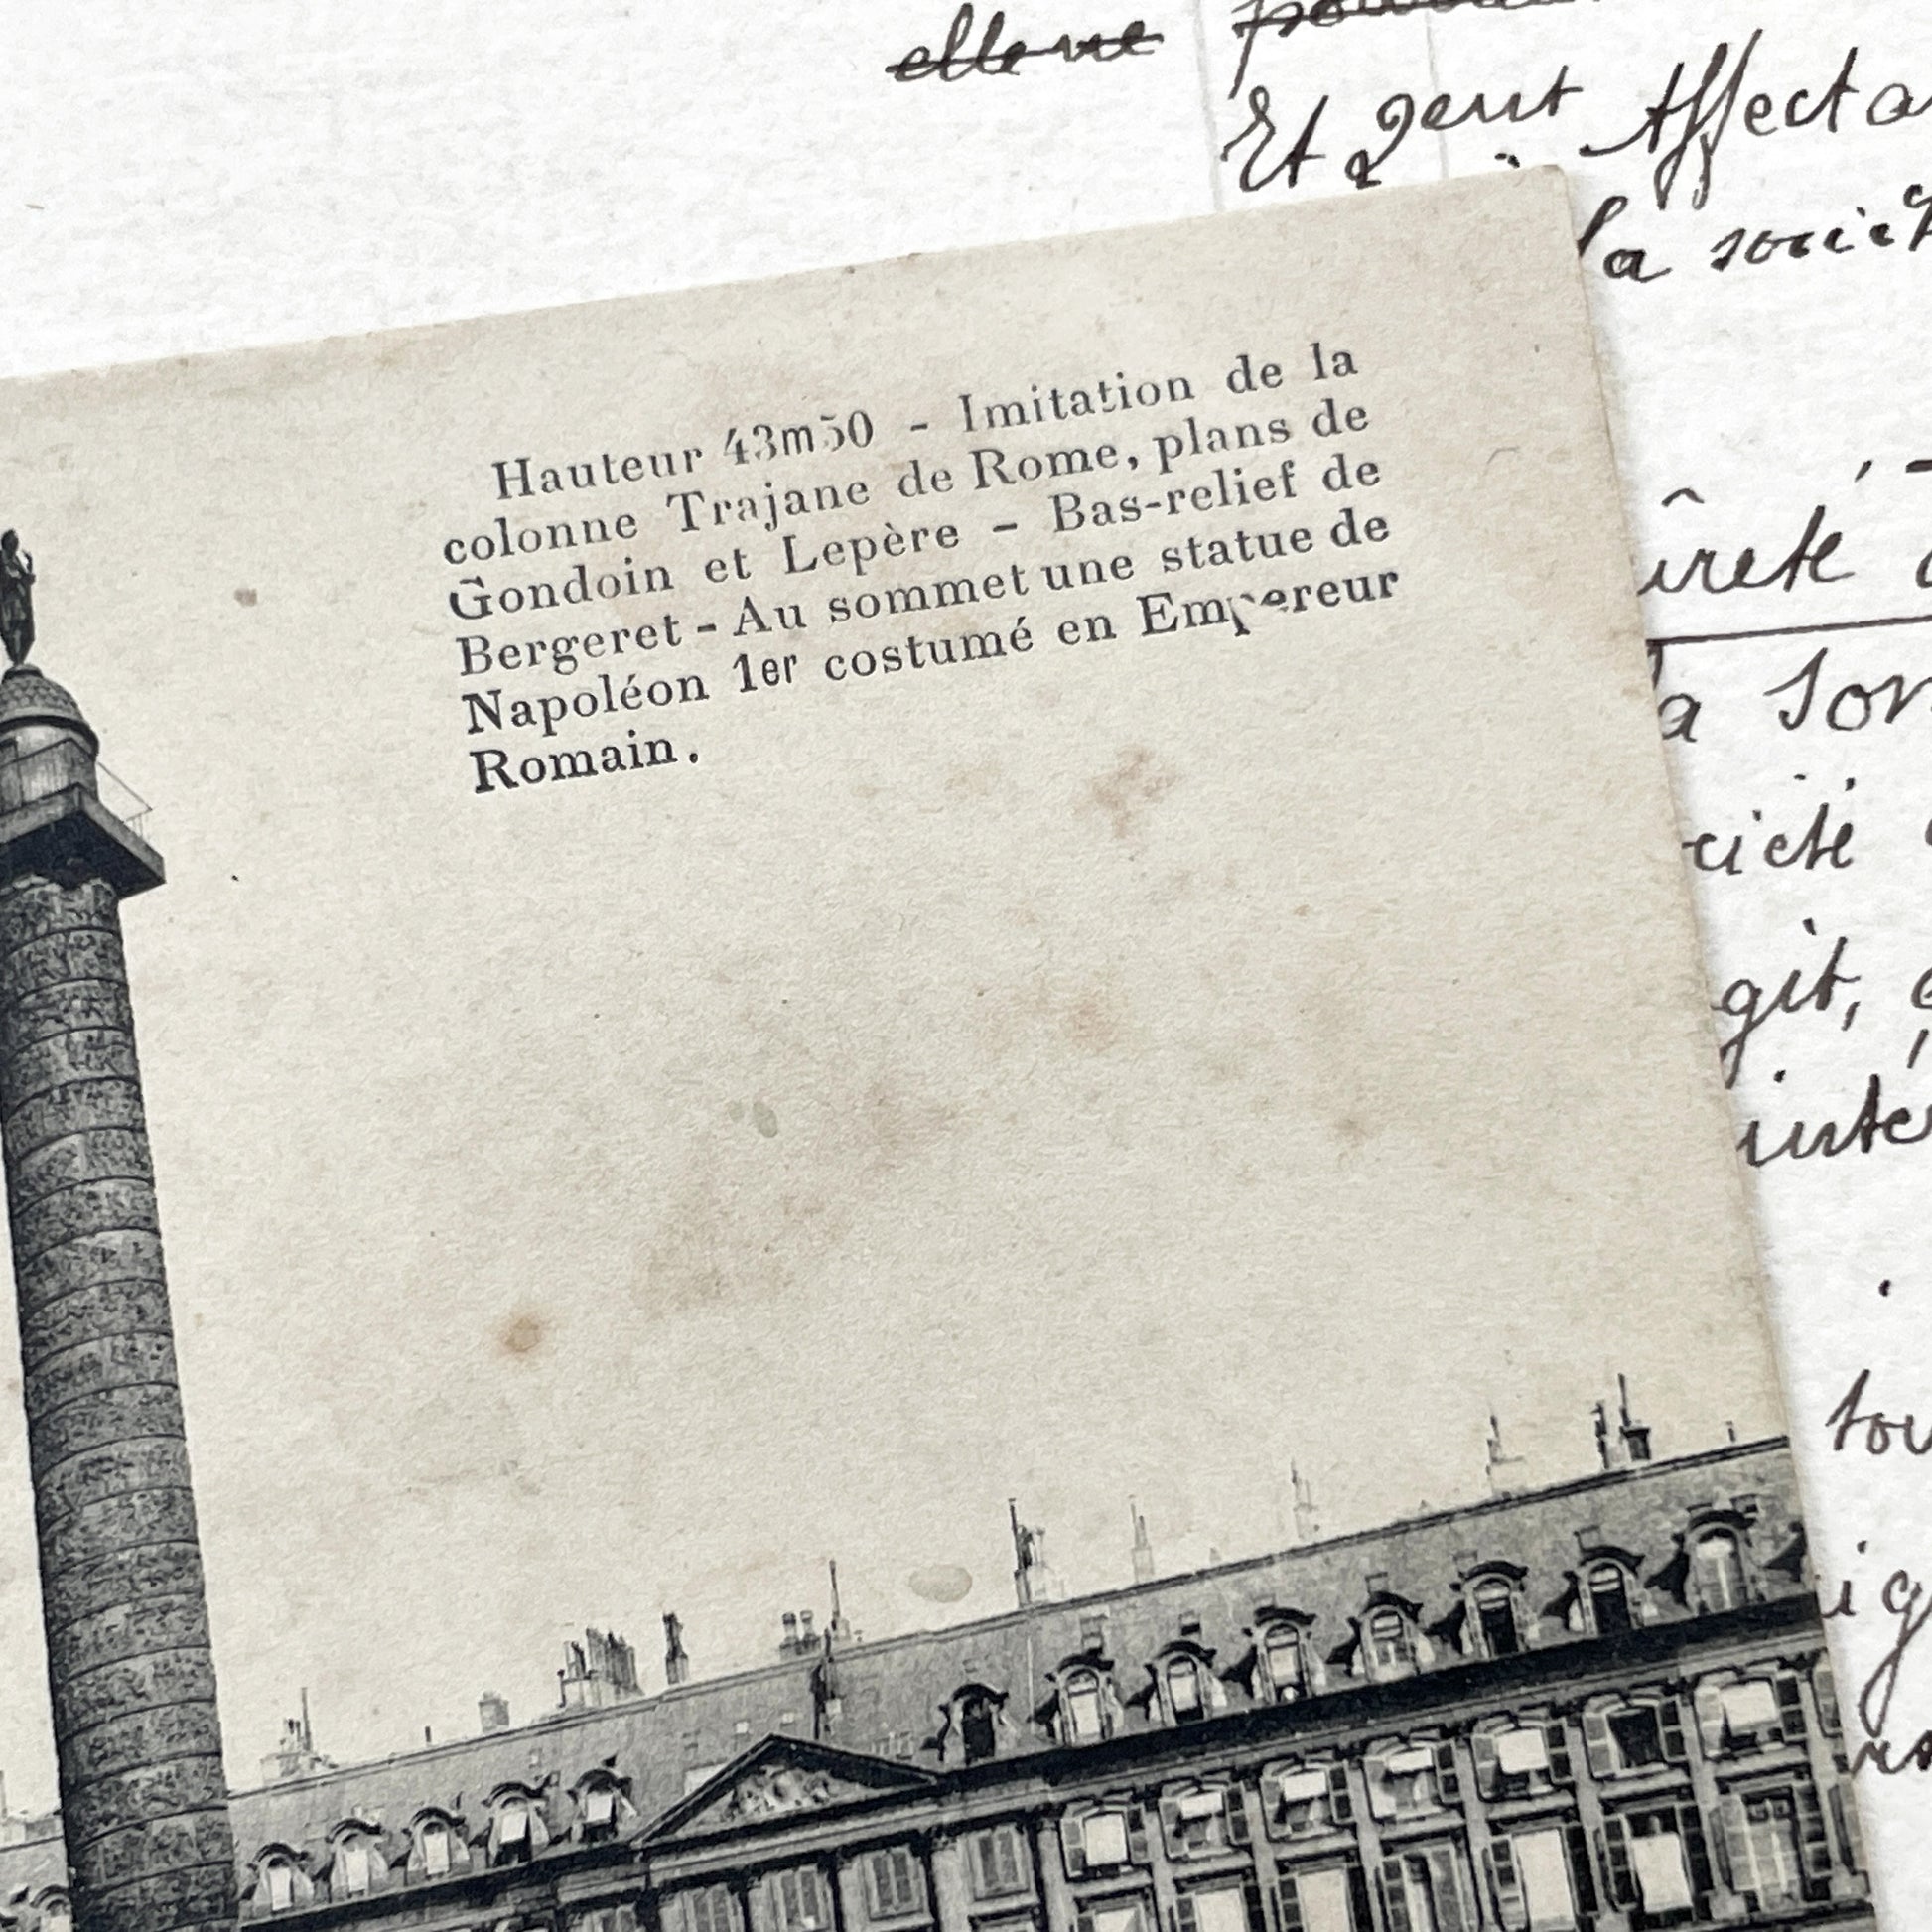 elle ne
Et peut Affecta
la sociét
Hauteur 43m50 - Imitation de la
colonne Trajane de Rome, plans de
Gondoin et Lepère - Bas-relief de
Bergeret - Au sommet une statue de
Napoléon 1er costumé en Empereur
Romain.
ûreté
la
ciété
git,